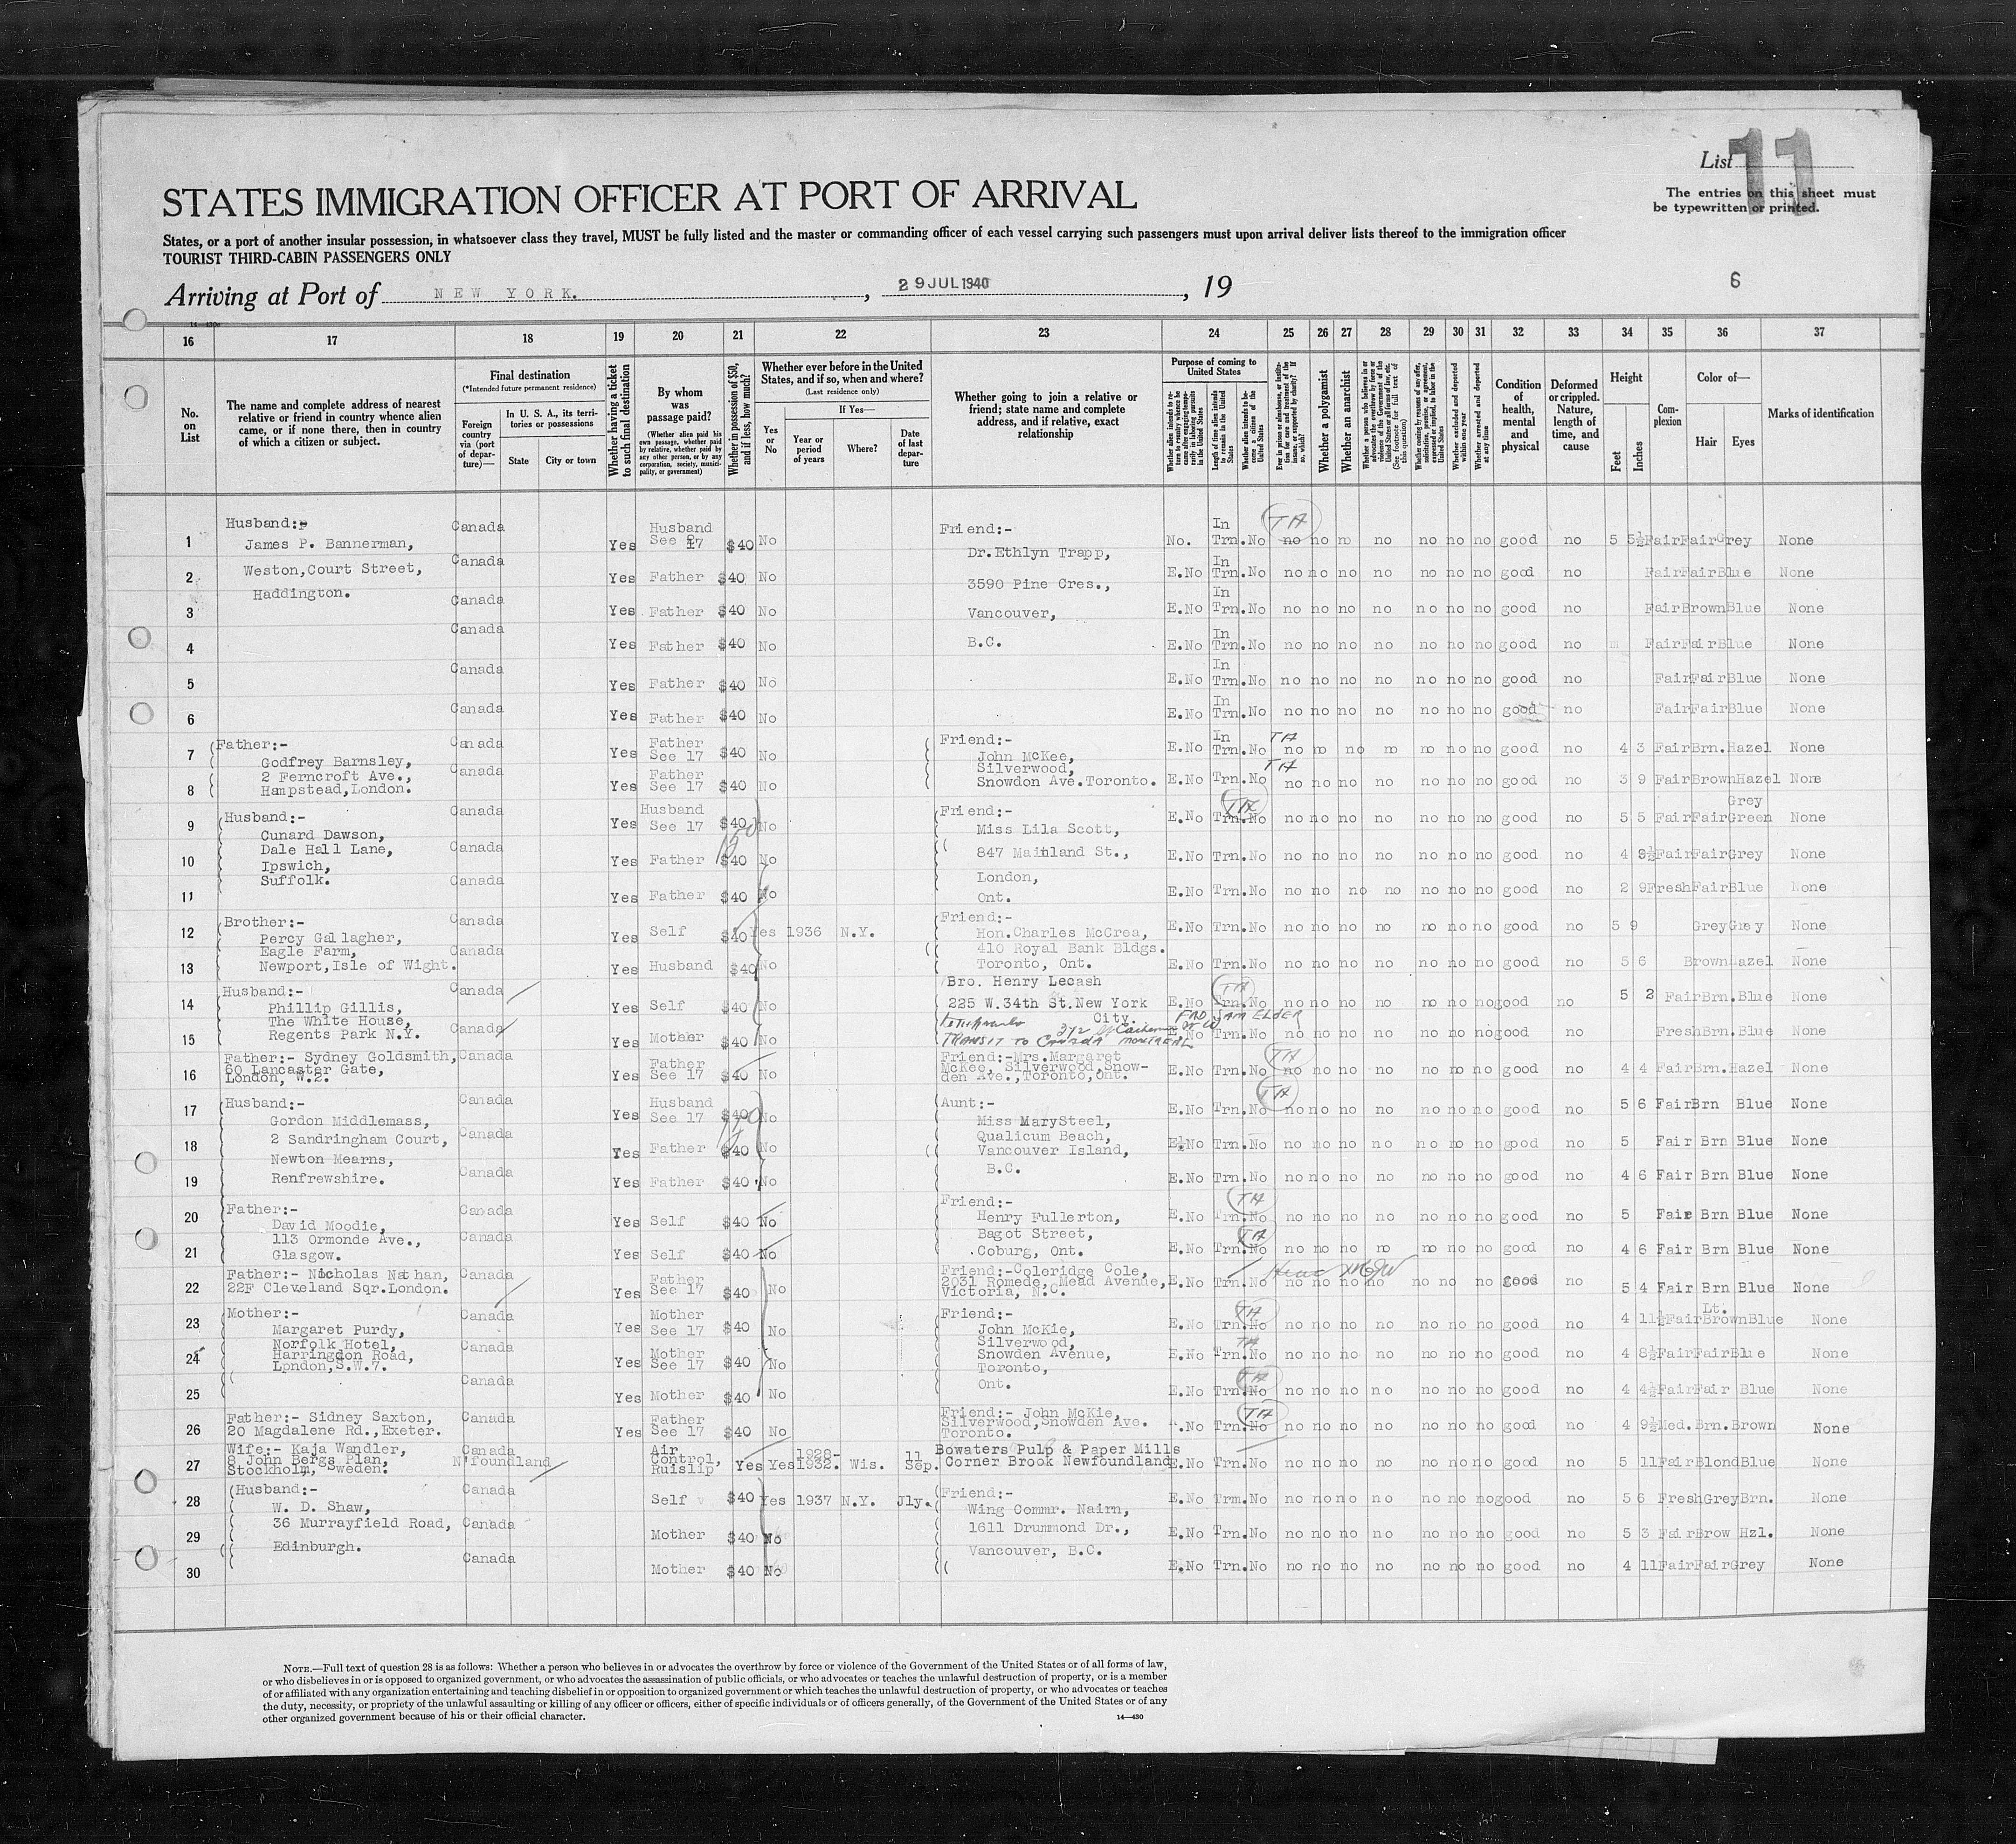 List 11
The entries on this sheet must
be typewritten or printed.
STATES IMMIGRATION OFFICER AT PORT OF ARRIVAL
States, or a port of another insular possession, in whatsoever class they travel, MUST be fully listed and the master or commanding officer of each vessel carrying such passengers must upon arrival deliver lists thereof to the immigration officer
TOURIST THIRD-CABIN PASSENGERS ONLY
Arriving at Port of NEW YORK. , 29 JUL 1940 , 19
6
16 17 18 19 20 21 22 23 24 25 26 27 28 29 30 31 32 33 34 35 36 37
No. on List
The name and complete address of nearest relative or friend in country whence alien came, or if none there, then in country of which a citizen or subject.
Final destination
(*Intended future permanent residence)
Foreign country via (port of departure)—
In U. S. A., its territories or possessions
State
City or town
Whether having a ticket to such final destination
By whom was passage paid?
(Whether alien paid his own passage, whether paid by relative, whether paid by any other person, or by any corporation, society, municipality, or government)
Whether in possession of $50, and if less, how much?
Whether ever before in the United States, and if so, when and where?
(Last residence only)
Yes or No
If Yes—
Year or period of years
Where?
Date of last departure
Whether going to join a relative or friend; state name and complete address, and if relative, exact relationship
Purpose of coming to United States
Whether a polygamist
Whether an anarchist
Condition of health, mental and physical
Deformed or crippled. Nature, length of time, and cause
Height
Feet
Inches
Complexion
Color of—
Hair
Eyes
Marks of identification
1 Husband:- Canada Yes Husband See 17 $40 No Friend:- No. In Trn. No TA no no no no no no no good no 5 5½ Fair Fair Grey None
James P. Bannerman, Dr. Ethlyn Trapp,
2 Weston, Court Street, Canada Yes Father $40 No 3590 Pine Cres., E.No In Trn. No no no no no no no no good no Fair Fair Blue None
Haddington.
3 Canada Yes Father $40 No Vancouver, E.No In Trn. No no no no no no no no good no Fair Brown Blue None
4 Canada Yes Father $40 No B.C. E.No In Trn. No no no no no no no no good no Fair Fair Blue None
5 Canada Yes Father $40 No E.No In Trn. No no no no no no no no good no Fair Fair Blue None
6 Canada Yes Father $40 No E.No In Trn. No no no no no no no no good no Fair Fair Blue None
7 Father:- Canada Yes Father See 17 $40 No Friend:- E.No In Trn. No TA no no no no no no no good no 4 3 Fair Brn. Hazel None
Godfrey Barnsley, John McKee,
2 Ferncroft Ave., Silverwood,
8 Hampstead, London. Canada Yes Father See 17 $40 No Snowdon Ave. Toronto. E.No Trn. No TA no no no no no no no good no 3 9 Fair Brown Hazel None
9 Husband:- Canada Yes Husband See 17 $40 No Friend:- E.No Trn. No TA no no no no no no no good no 5 5 Fair Fair Grey Green None
Cunard Dawson, Miss Lila Scott,
Dale Hall Lane,
10 Ipswich, Canada Yes Father $40 No 847 Mainland St., E.No Trn. No no no no no no no no good no 4 9½ Fair Fair Grey None
Suffolk. London,
11 Canada Yes Father $40 No Ont. E.No Trn. No no no no no no no no good no 2 9 Fresh Fair Blue None
12 Brother:- Canada Yes Self $40 Yes 1936 N.Y. Friend:- E.No Trn. No no no no no no no no good no 5 9 Grey Grey None
Percy Gallagher, Hon. Charles McCrea,
Eagle Farm, 410 Royal Bank Bldgs.
13 Newport, Isle of Wight. Canada Yes Husband $40 No Toronto, Ont. E.No Trn. No no no no no no no no good no 5 6 Brown Hazel None
14 Husband:- Canada Yes Self $40 No Bro. Henry Lecash E.No Trn. No TA no no no no no no no good no 5 2 Fair Brn. Blue None
Phillip Gillis, 225 W. 34th St. New York City.
The White House,
15 Regents Park N.Y. Canada Yes Mother $40 No Transit to Canada Montreal E.No Trn. No no no no no no no no good Fresh Brn. Blue None
16 Father:- Sydney Goldsmith, 60 Lancaster Gate, London, W.2. Canada Yes Father See 17 $40 No Friend:-Mrs. Margaret McKee, Silverwood, Snowden Ave., Toronto, Ont. E.No Trn. No TA no no no no no no no good no 4 4 Fair Brn. Hazel None
17 Husband:- Canada Yes Husband See 17 $40 No Aunt:- E.No Trn. No TA no no no no no no no good no 5 6 Fair Brn Blue None
Gordon Middlemass, Miss Mary Steel,
18 2 Sandringham Court, Canada Yes Father $40 No Qualicum Beach, E.No Trn. No no no no no no no no good no 5 Fair Brn Blue None
Newton Mearns, Vancouver Island,
19 Renfrewshire. Canada Yes Father $40 No B.C. E.No Trn. No no no no no no no no good no 4 6 Fair Brn Blue None
20 Father:- Canada Yes Self $40 No Friend:- E.No Trn. No TA no no no no no no no good no 5 Fair Brn Blue None
David Moodie, Henry Fullerton,
113 Ormonde Ave., Bagot Street,
21 Glasgow. Canada Yes Self $40 No Coburg, Ont. E.No Trn. No TA no no no no no no no good no 4 6 Fair Brn Blue None
22 Father:- Nicholas Nathan, 22F Cleveland Sqr. London. Canada Yes Father See 17 $40 No Friend:-Coleridge Cole, 2031 Romede, Mead Avenue, Victoria, N.C. E.No Trn. No no no no no no no no good no 5 4 Fair Brn Blue None
23 Mother:- Canada Yes Mother See 17 $40 No Friend:- E.No Trn. No TA no no no no no no no good no 4 11½ Fair Lt. Brown Blue None
Margaret Purdy, John McKie,
Norfolk Hotel, Silverwood,
24 Harringdon Road, Canada Yes Mother See 17 $40 No Snowden Avenue, E.No Trn. No TA no no no no no no no good no 4 8½ Fair Fair Blue None
London, S.W.7. Toronto,
25 Canada Yes Mother $40 No Ont. E.No Trn. No TA no no no no no no no good no 4 4½ Fair Fair Blue None
26 Father:- Sidney Saxton, 20 Magdalene Rd., Exeter. Canada Yes Father See 17 $40 No Friend:- John McKie, Silverwood, Snowden Ave. Toronto. No Trn. No TA no no no no no no no good no 4 9½ Med. Brn. Brown None
27 Wife:- Kaja Wandler, 8 John Bergs Plan, Stockholm, Sweden. Canada N'foundland Air Control, Ruislip Yes Yes 1928-1932. Wis. 11 Sep. Bowaters Pulp & Paper Mills Corner Brook Newfoundland E.No Trn. No no no no no no no no good no 5 11 Fair Blond Blue None
28 Husband:- Canada Self $40 Yes 1937 N.Y. Jly. Friend:- E.No Trm. No no no no no no no no good no 5 6 Fresh Grey Brn. None
W. D. Shaw, Wing Commr. Nairn,
29 36 Murrayfield Road, Canada Mother $40 No 1611 Drummond Dr., E.No Trn. No no no no no no no no good no 5 3 Fair Brow Hzl. None
Edinburgh. Vancouver, B.C.
30 Canada Mother $40 No E.No Trn. No no no no no no no no good no 4 11 Fair Fair Grey None
NOTE.—Full text of question 28 is as follows: Whether a person who believes in or advocates the overthrow by force or violence of the Government of the United States or of all forms of law,
or who disbelieves in or is opposed to organized government, or who advocates the assassination of public officials, or who advocates or teaches the unlawful destruction of property, or is a member
of or affiliated with any organization entertaining and teaching disbelief in or opposition to organized government or which teaches the unlawful destruction of property, or who advocates or teaches
the duty, necessity, or propriety of the unlawful assaulting or killing of any officer or officers, either of specific individuals or of officers generally, of the Government of the United States or of any
other organized government because of his or their official character.
14—430